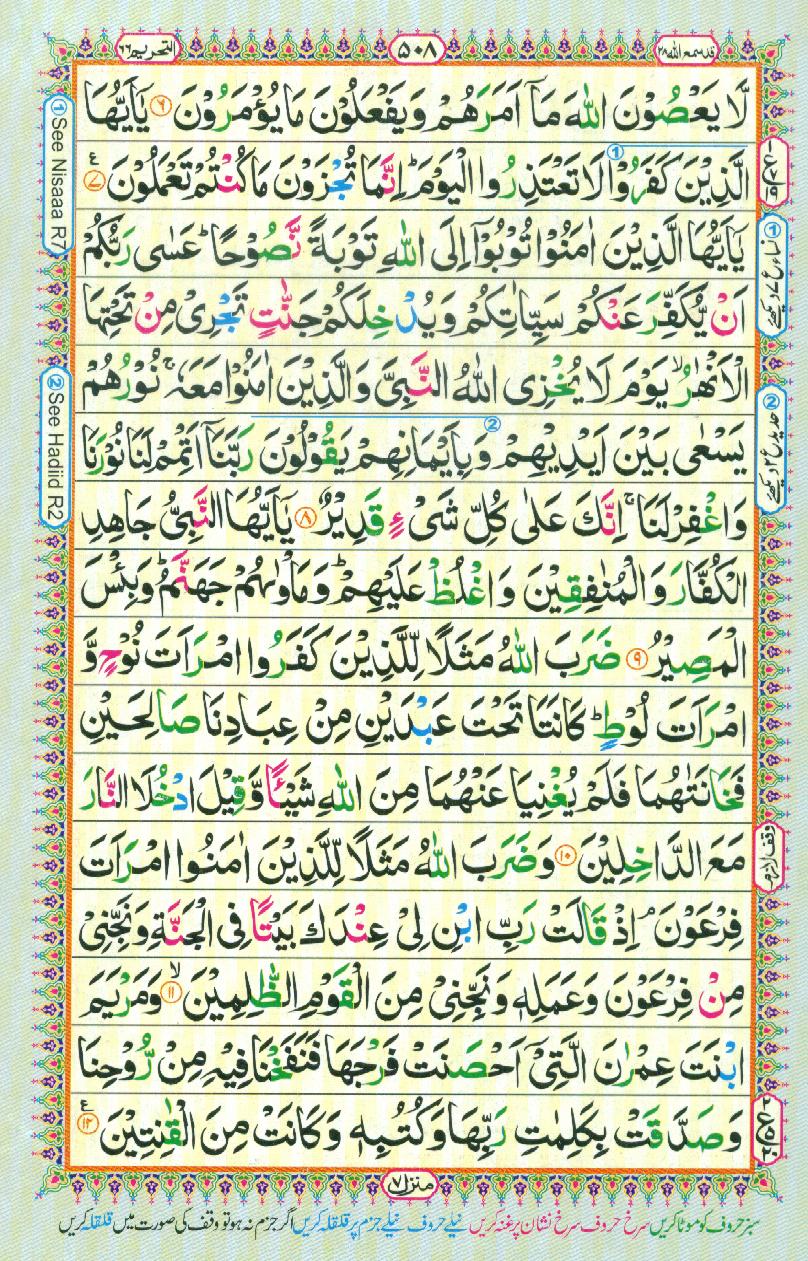 قد سمع الله ٢٨
٥٠٨
التحریم ٦٦
لَّا یَعْصُوْنَ اللّٰهَ مَاۤ اَمَرَهُمْ وَ یَفْعَلُوْنَ مَا یُؤْمَرُوْنَ ۝۶ یٰۤاَیُّهَا
الَّذِیْنَ كَفَرُوْا لَا تَعْتَذِرُوا الْیَوْمَ ؕ اِنَّمَا تُجْزَوْنَ مَا كُنْتُمْ تَعْمَلُوْنَ ۝۷ ع
یٰۤاَیُّهَا الَّذِیْنَ اٰمَنُوْا تُوْبُوْۤا اِلَی اللّٰهِ تَوْبَةً نَّصُوْحًا ؕ عَسٰی رَبُّكُمْ
اَنْ یُّكَفِّرَ عَنْكُمْ سَیِّاٰتِكُمْ وَ یُدْخِلَكُمْ جَنّٰتٍ تَجْرِیْ مِنْ تَحْتِهَا
الْاَنْهٰرُ ۙ یَوْمَ لَا یُخْزِی اللّٰهُ النَّبِیَّ وَ الَّذِیْنَ اٰمَنُوْا مَعَهٗ ۚ نُوْرُهُمْ
یَسْعٰی بَیْنَ اَیْدِیْهِمْ وَ بِاَیْمَانِهِمْ یَقُوْلُوْنَ رَبَّنَاۤ اَتْمِمْ لَنَا نُوْرَنَا
وَ اغْفِرْ لَنَا ۚ اِنَّكَ عَلٰی كُلِّ شَیْءٍ قَدِیْرٌ ۝۸ یٰۤاَیُّهَا النَّبِیُّ جَاهِدِ
الْكُفَّارَ وَ الْمُنٰفِقِیْنَ وَ اغْلُظْ عَلَیْهِمْ ؕ وَ مَاْوٰىهُمْ جَهَنَّمُ ؕ وَ بِئْسَ
الْمَصِیْرُ ۝۹ ضَرَبَ اللّٰهُ مَثَلًا لِّلَّذِیْنَ كَفَرُوا امْرَاَتَ نُوْحٍ وَّ
امْرَاَتَ لُوْطٍ ؕ كَانَتَا تَحْتَ عَبْدَیْنِ مِنْ عِبَادِنَا صَالِحَیْنِ
فَخَانَتٰهُمَا فَلَمْ یُغْنِیَا عَنْهُمَا مِنَ اللّٰهِ شَیْـًٔا وَّ قِیْلَ ادْخُلَا النَّارَ
مَعَ الدّٰخِلِیْنَ ۝۱۰ وَ ضَرَبَ اللّٰهُ مَثَلًا لِّلَّذِیْنَ اٰمَنُوا امْرَاَتَ
فِرْعَوْنَ ۘ اِذْ قَالَتْ رَبِّ ابْنِ لِیْ عِنْدَكَ بَیْتًا فِی الْجَنَّةِ وَ نَجِّنِیْ
مِنْ فِرْعَوْنَ وَ عَمَلِهٖ وَ نَجِّنِیْ مِنَ الْقَوْمِ الظّٰلِمِیْنَ ۝۱۱ ۙ وَ مَرْیَمَ
ابْنَتَ عِمْرٰنَ الَّتِیْۤ اَحْصَنَتْ فَرْجَهَا فَنَفَخْنَا فِیْهِ مِنْ رُّوْحِنَا
وَ صَدَّقَتْ بِكَلِمٰتِ رَبِّهَا وَ كُتُبِهٖ وَ كَانَتْ مِنَ الْقٰنِتِیْنَ ۝۱۲ ع
① See Nisaaa R7
② See Hadiid R2
① نساء ع ۷ دیکھئے
② حدید ع ۲ دیکھئے
وقف لازم
منزل ۷
سبز حروف کو موٹا کریں سرخ حروف سرخ نشان پر غنہ کریں نیلے حروف نیلے جزم پر قلقلہ کریں اگر جزم نہ ہو تو وقف کی صورت میں قلقلہ کریں